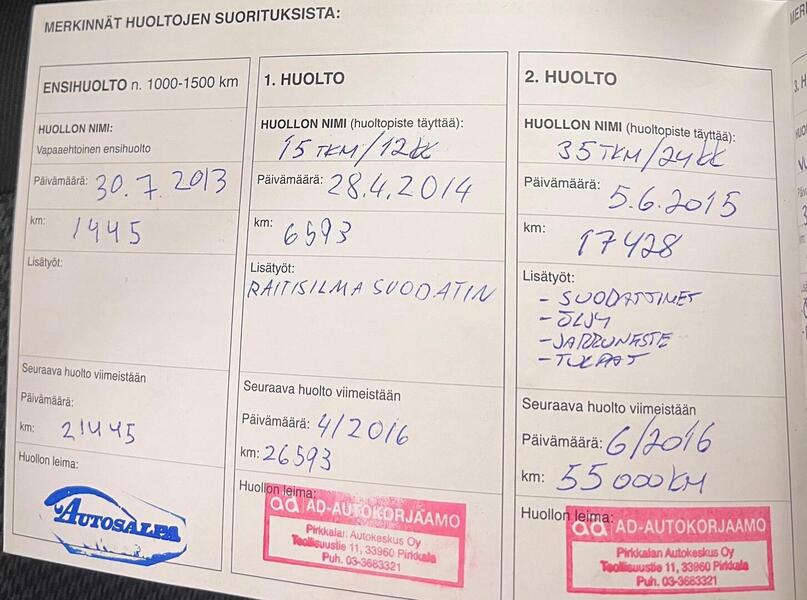 MERKINNÄT HUOLTOJEN SUORITUKSISTA:
ENSIHUOLTO n. 1000-1500 km
HUOLLON NIMI:
Vapaaehtoinen ensihuolto
Päivämäärä: 30.7.2013
km: 1445
Lisätyöt:
Seuraava huolto viimeistään
Päivämäärä:
km: 21445
Huollon leima:
AUTOSALPA
1. HUOLTO
HUOLLON NIMI (huoltopiste täyttää):
15 TKM/12KK
Päivämäärä: 28.4.2014
km: 6593
Lisätyöt:
RAITISILMA SUODATIN
Seuraava huolto viimeistään
Päivämäärä: 4/2016
km: 26593
Huollon leima:
ad AD-AUTOKORJAAMO
Pirkkalan Autokeskus Oy
Teollisuustie 11, 33960 Pirkkala
Puh. 03-3683321
2. HUOLTO
HUOLLON NIMI (huoltopiste täyttää):
35TKM/24KK
Päivämäärä: 5.6.2015
km: 17428
Lisätyöt:
- SUODATTIMET
- ÖLJY
- JARRUNESTE
- TULPAT
Seuraava huolto viimeistään
Päivämäärä: 6/2016
km: 55000KM
Huollon leima:
ad AD-AUTOKORJAAMO
Pirkkalan Autokeskus Oy
Teollisuustie 11, 33960 Pirkkala
Puh. 03-3683321